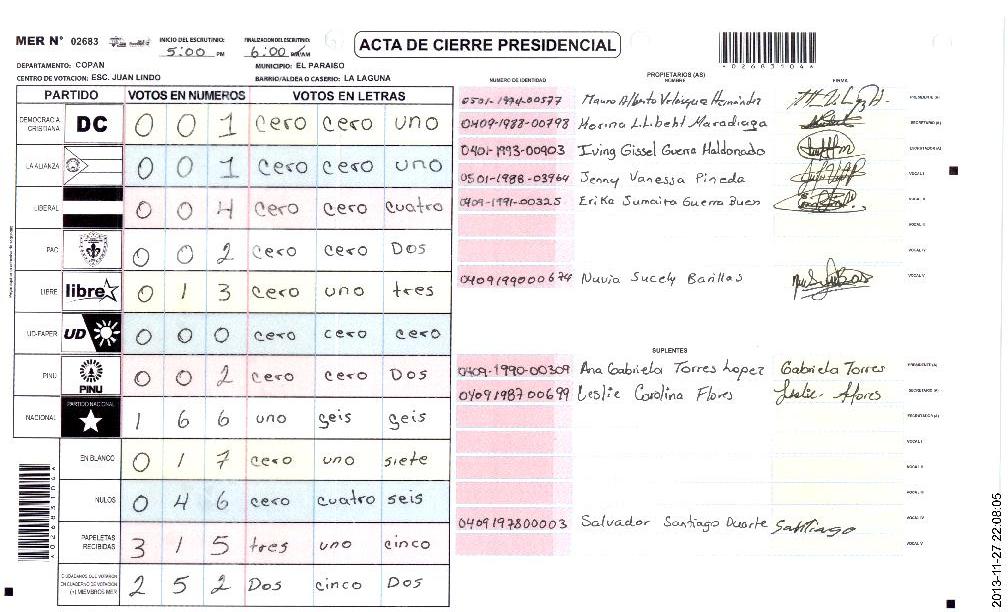 MER N° 02683
INICIO DEL ESCRUTINIO: 5:00 PM
FINALIZACION DEL ESCRUTINIO: 6:00 PM/AM
ACTA DE CIERRE PRESIDENCIAL
*026831046*
DEPARTAMENTO: COPAN
MUNICIPIO: EL PARAISO
CENTRO DE VOTACION: ESC. JUAN LINDO
BARRIO/ALDEA O CASERIO: LA LAGUNA
PARTIDO VOTOS EN NUMEROS VOTOS EN LETRAS
DEMOCRACIA CRISTIANA DC 0 0 1 cero cero uno
LA ALIANZA 0 0 1 cero cero uno
LIBERAL 0 0 4 cero cero cuatro
PAC 0 0 2 cero cero Dos
LIBRE libre 0 1 3 cero uno tres
UD-FAPER UD 0 0 0 cero cero cero
PINU PINU 0 0 2 cero cero Dos
NACIONAL PARTIDO NACIONAL 1 6 6 uno seis seis
EN BLANCO 0 1 7 cero uno siete
NULOS 0 4 6 cero cuatro seis
PAPELETAS RECIBIDAS 3 1 5 tres uno cinco
CIUDADANOS QUE VOTARON EN CUADERNO DE VOTACION (+) MIEMBROS MER 2 5 2 Dos cinco Dos
PROPIETARIOS (AS)
NUMERO DE IDENTIDAD NOMBRE FIRMA
0501-1974-00577 Mauro Alberto Velasquez Hernández PRESIDENTE (A)
0409-1988-00798 Maradiaga SECRETARIO (A)
0401-1993-00903 Irving Gissel Guerra Maldonado ESCRUTADOR (A)
0501-1988-03964 Jenny Vanessa Pineda VOCAL I
0409-1991-00325 Erika Guerra VOCAL II
VOCAL III
VOCAL IV
0409199000674 Nuvia Sucely Barillas VOCAL V
SUPLENTES
0409-1990-00309 Ana Gabriela Torres Lopez Gabriela Torres PRESIDENTE (A)
0409198700699 Leslie Carolina Flores Leslie Flores SECRETARIO (A)
ESCRUTADOR (A)
VOCAL I
VOCAL II
VOCAL III
0409197800003 Salvador Santiago Duarte Santiago VOCAL IV
VOCAL V
*026831046*
2013-11-27 22:08:05